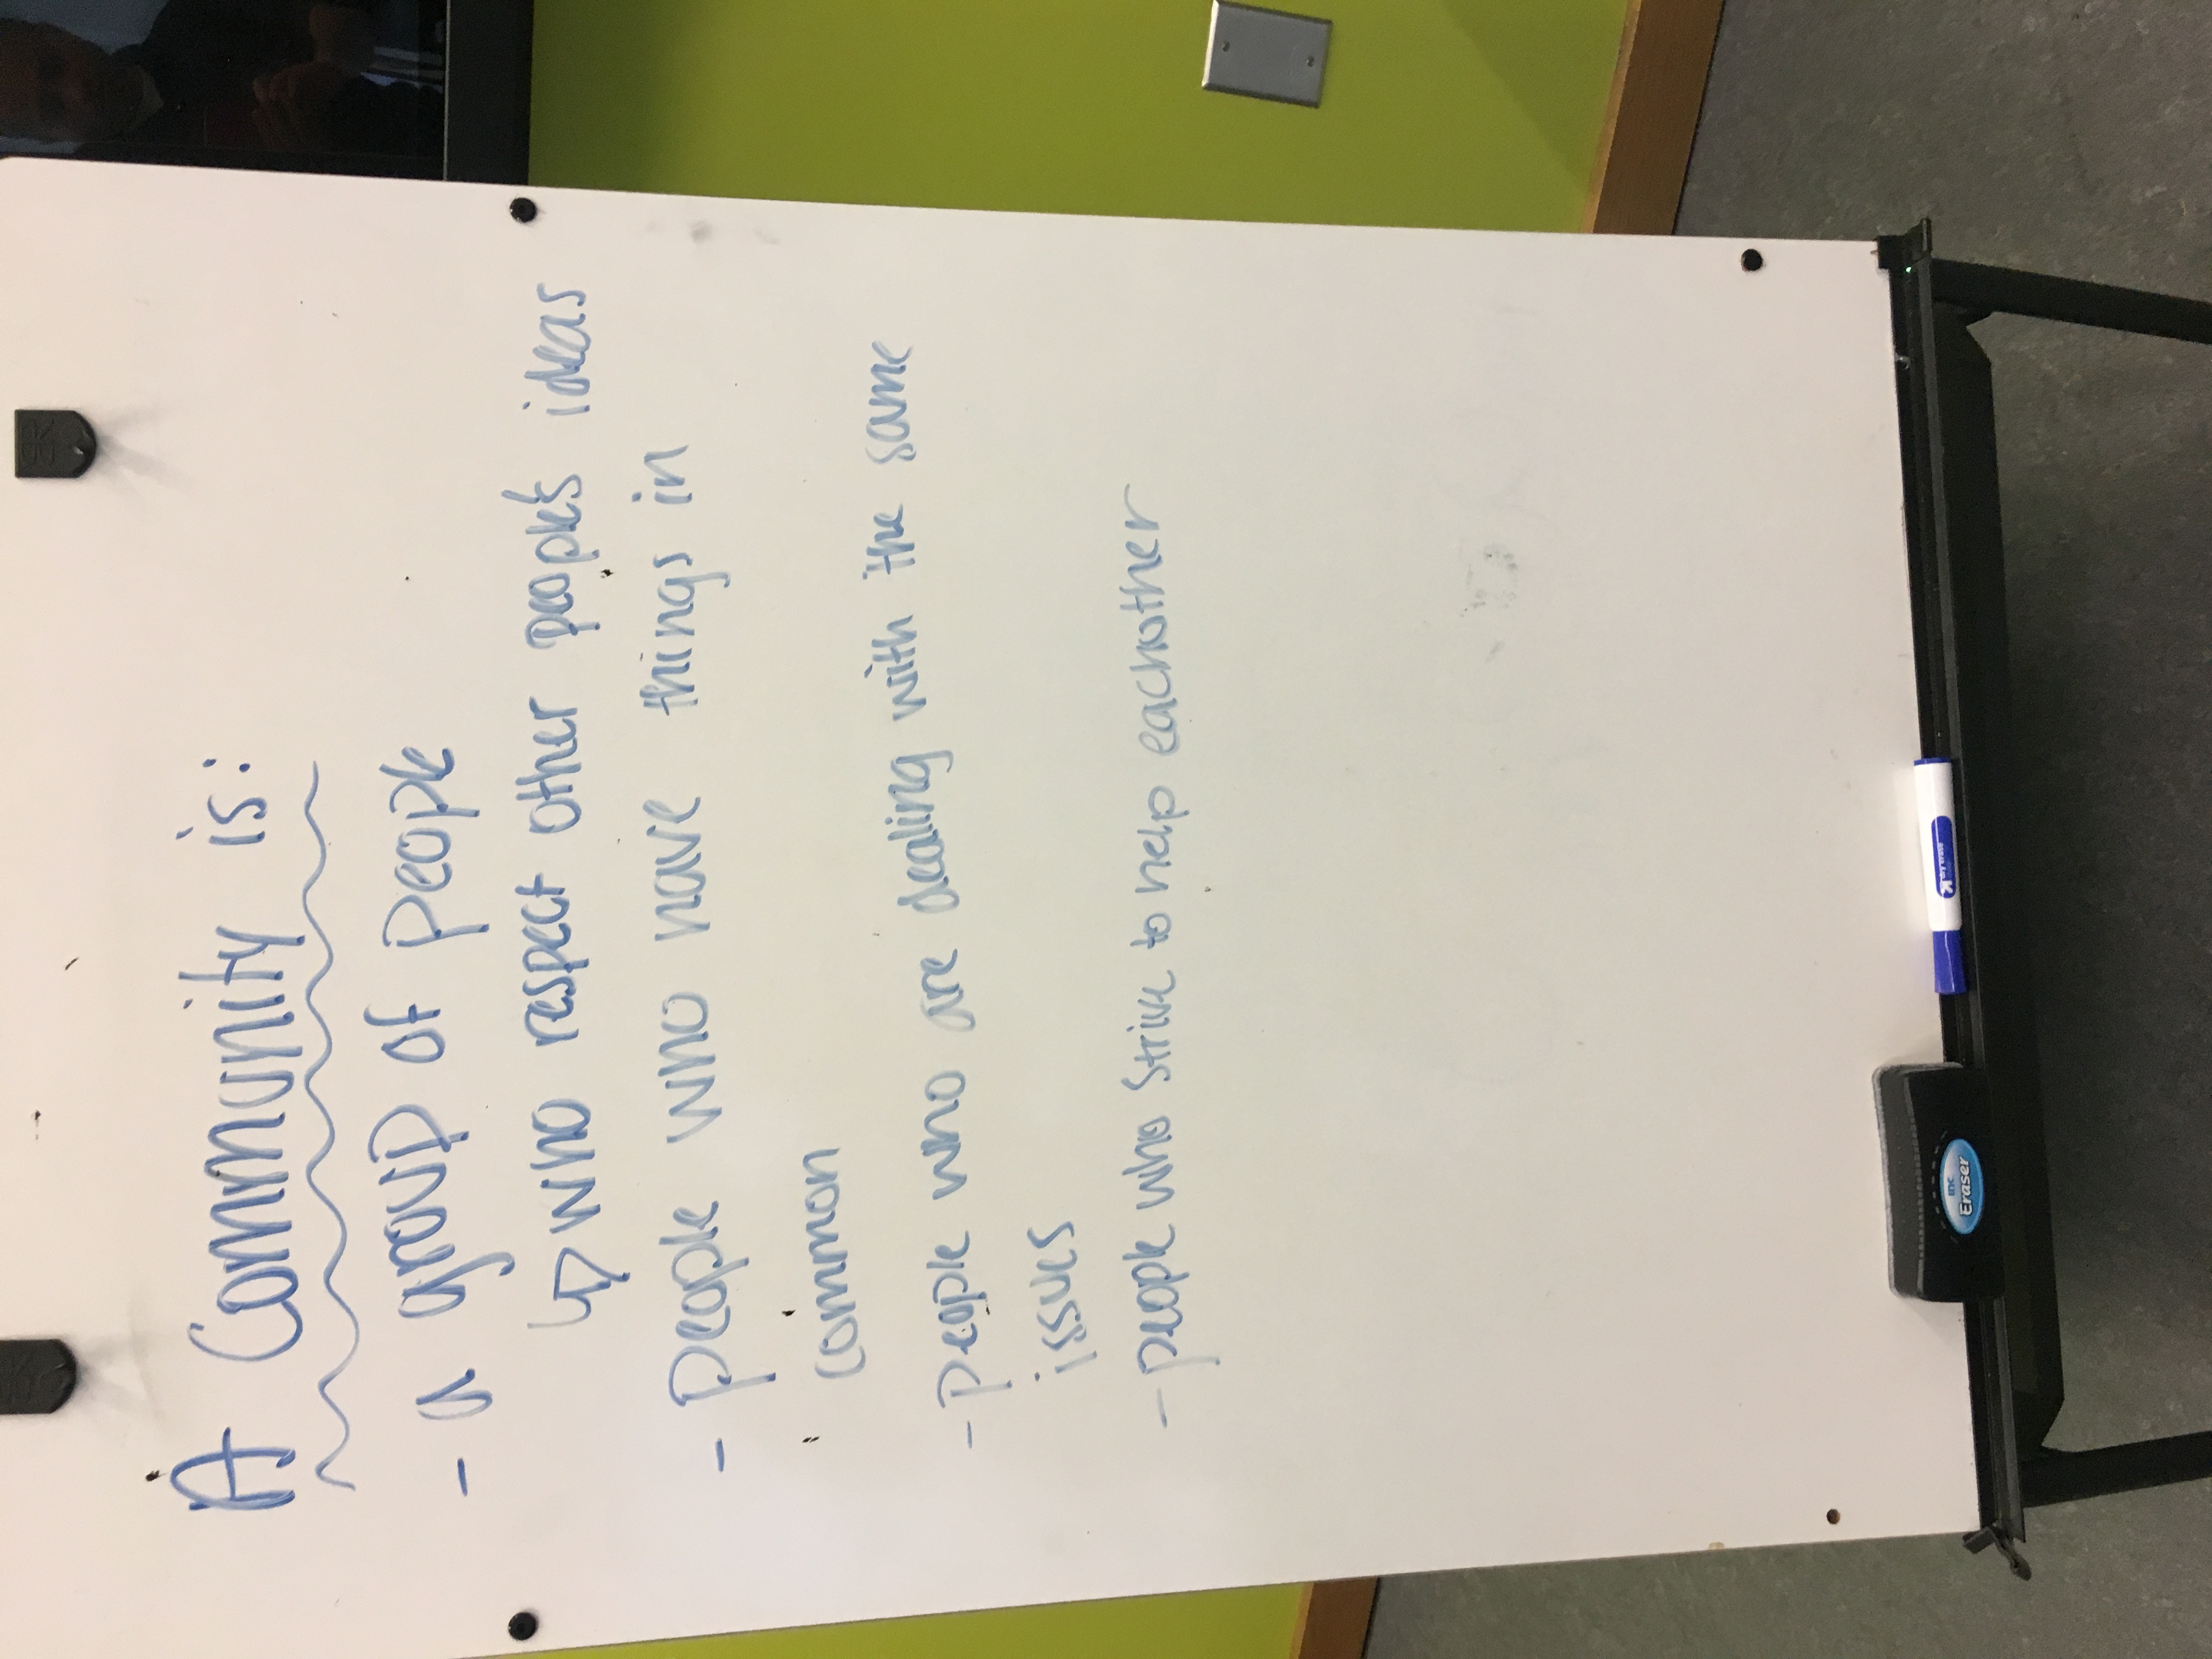 A Community is:
- a group of people
↳ who respect other people's ideas
- people who have things in
common
- people who are dealing with the same
issues
- people who strive to help eachother
Eraser
dry erase